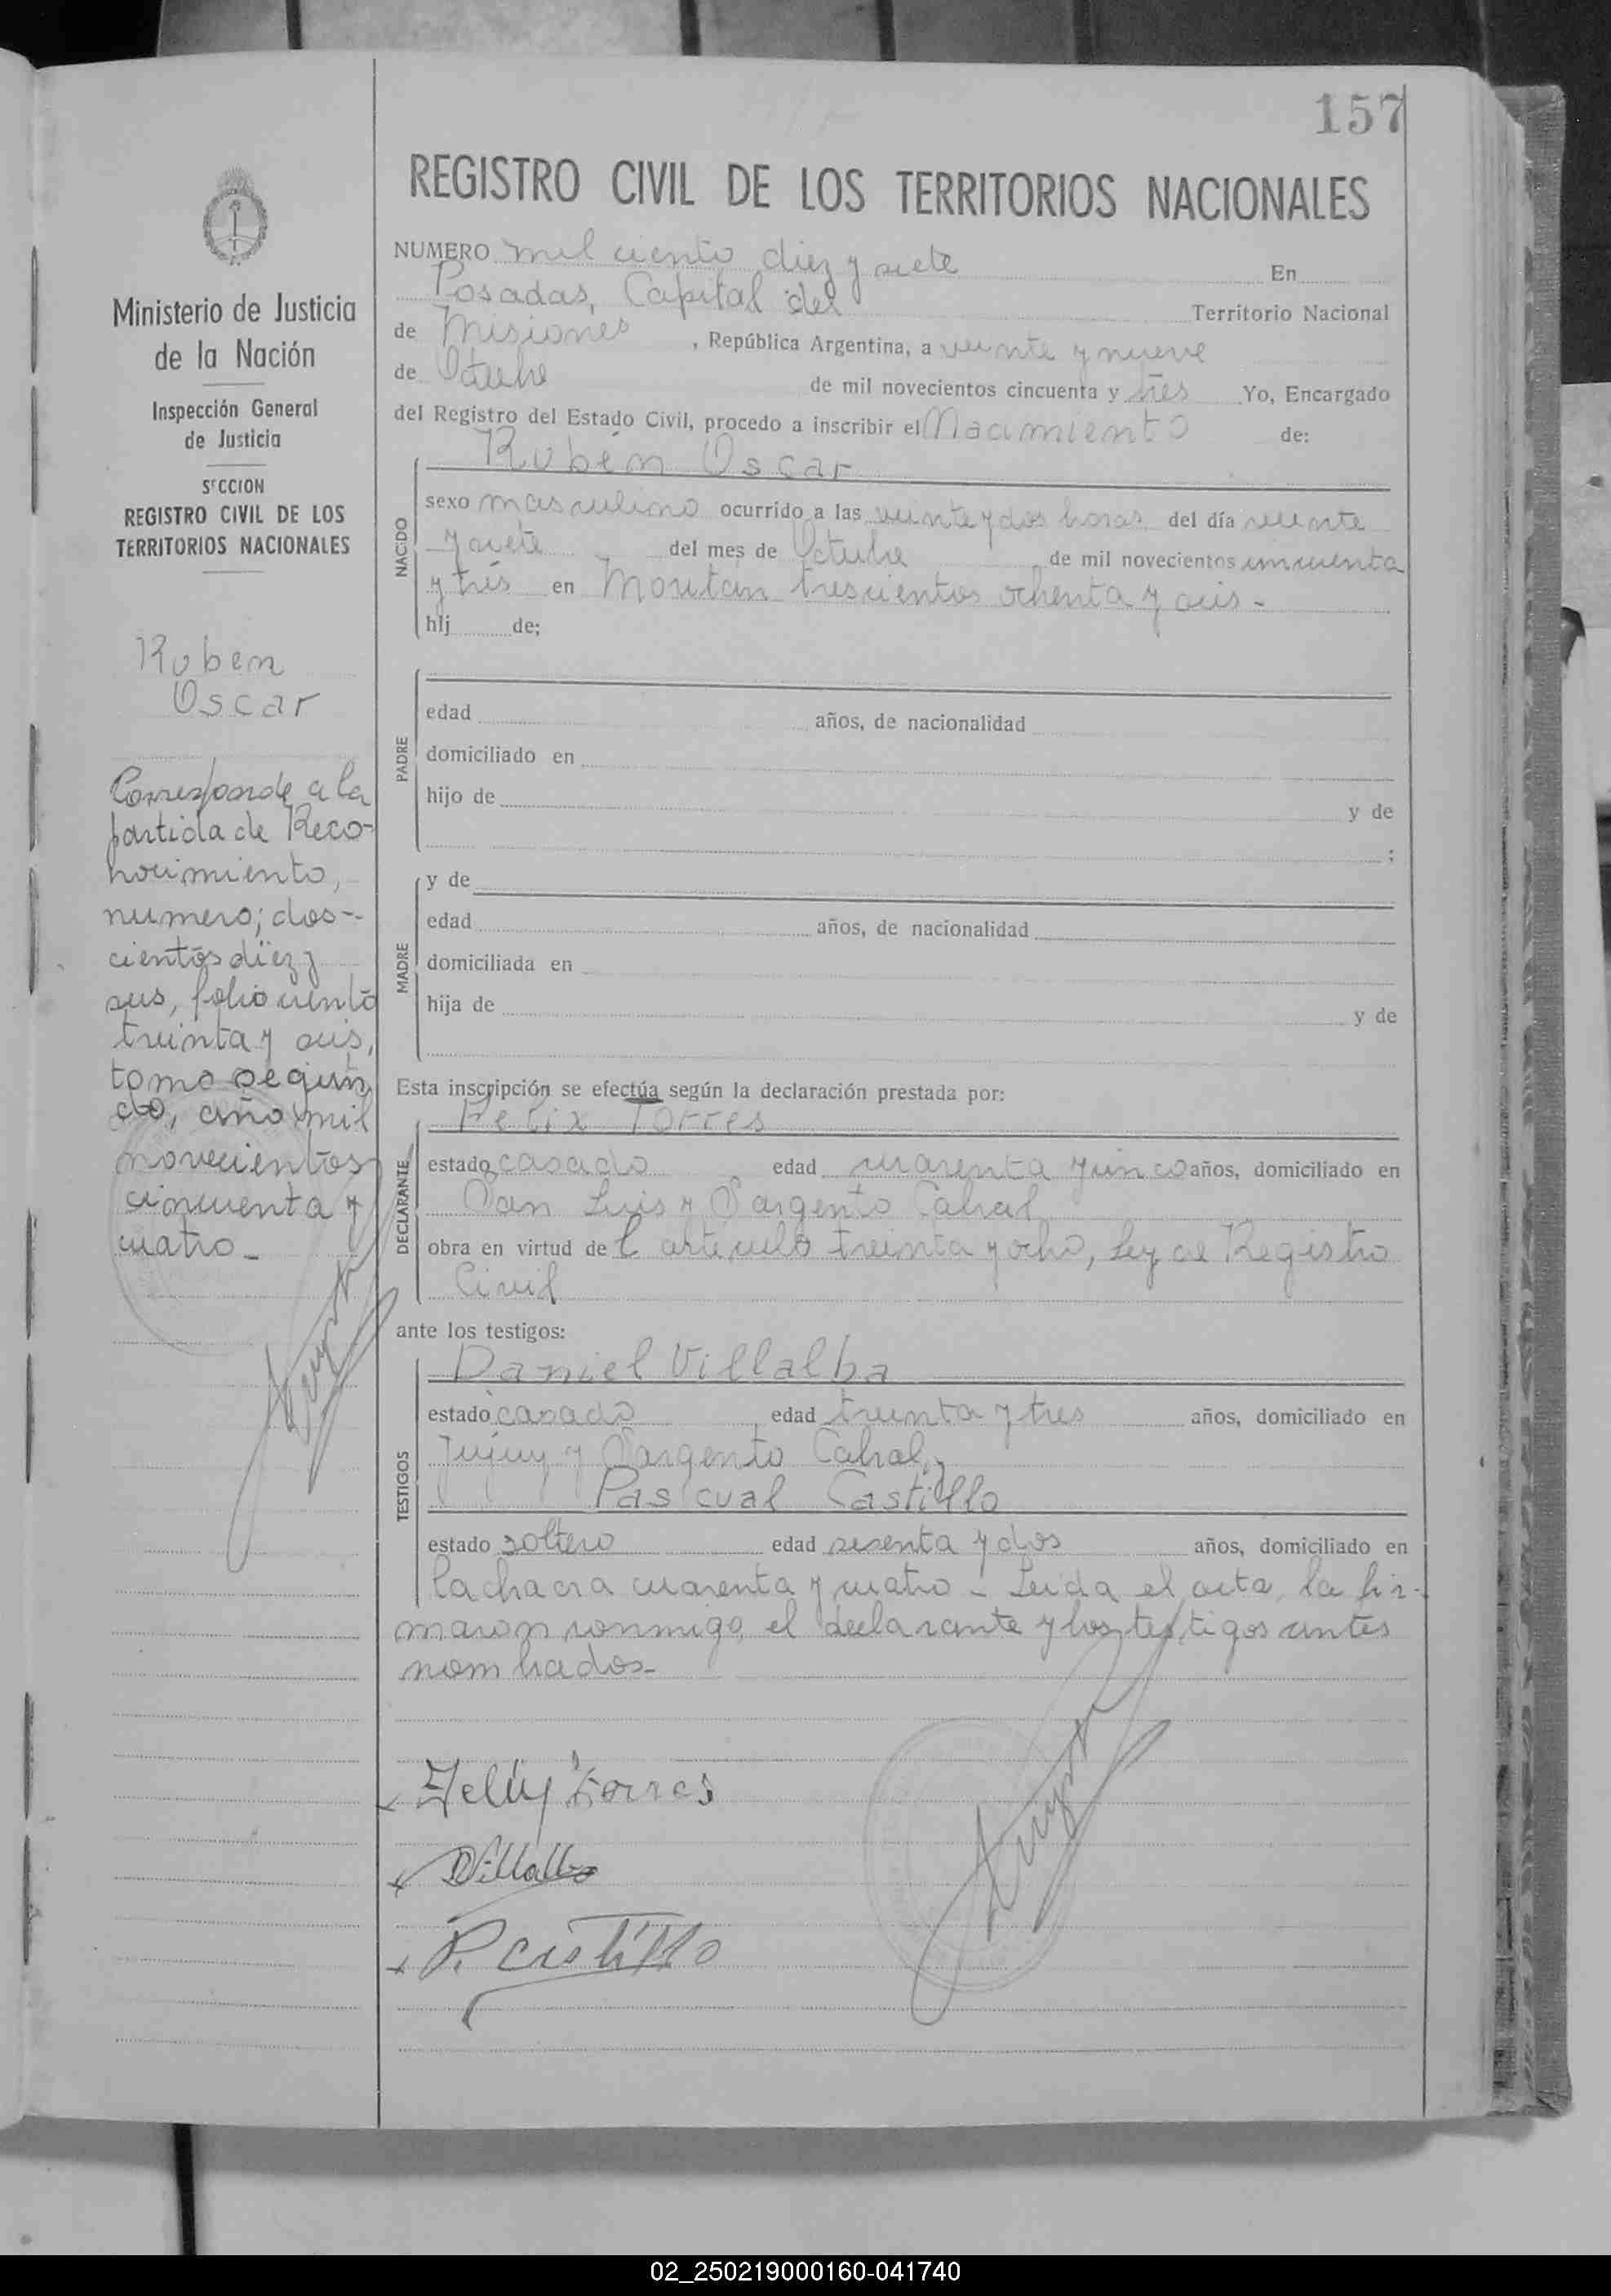 157
REGISTRO CIVIL DE LOS TERRITORIOS NACIONALES
NUMERO mil ciento diez y siete En
Posadas, Capital del Territorio Nacional
de Misiones, República Argentina, a veinte y nueve
de Octubre de mil novecientos cincuenta y tres Yo, Encargado
del Registro del Estado Civil, procedo a inscribir el Nacimiento de:
NACIDO
Rubén Oscar
sexo masculino ocurrido a las veinte y dos horas del día veinte
y siete del mes de Octubre de mil novecientos cincuenta
y trés en trescientos ochenta y seis -
hij de;
PADRE
edad años, de nacionalidad
domiciliado en
hijo de y de
;
MADRE
y de
edad años, de nacionalidad
domiciliada en
hija de y de
Esta inscripción se efectúa según la declaración prestada por:
DECLARANTE
Felix Torres
estado casado edad cuarenta y cinco años, domiciliado en
San Luis y Sargento Cabral
obra en virtud del artículo treinta y ocho, Ley de Registro
Civil
ante los testigos:
TESTIGOS
Daniel Villalba
estado casado edad treinta y tres años, domiciliado en
Jujuy y Sargento Cabral, y
Pascual Castillo
estado soltero edad sesenta y dos años, domiciliado en
la chacra cuarenta y cuatro - Leida el acta, la fir-
maron conmigo, el declarante y los testigos antes
nombrados-
Felix Torres
DVillalba
P. Castillo
Ministerio de Justicia
de la Nación
Inspección General
de Justicia
SECCION
REGISTRO CIVIL DE LOS
TERRITORIOS NACIONALES
Ruben
Oscar
Corresponde a la
partida de Reco-
nocimiento,
numero; dos-
cientos diez y
seis, folio ciento
treinta y seis,
tomo segun
do, año mil
novecientos
cincuenta y
cuatro-
02_250219000160-041740